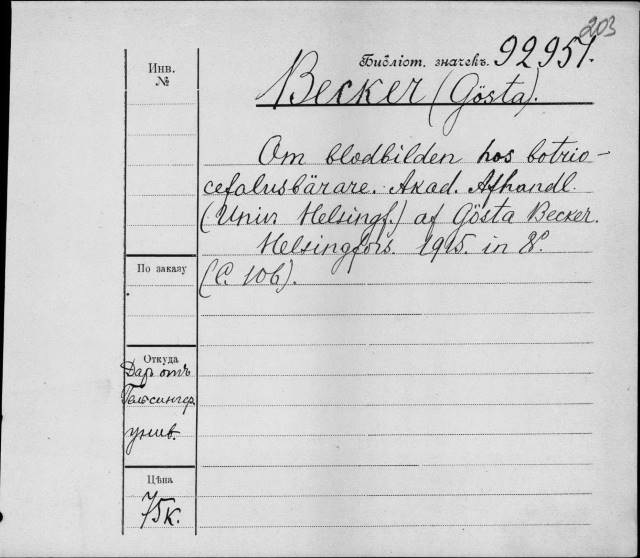 203
Библіот. значекъ. 92951.
Инв.
№
Becker (Gösta).
Om blodbilden hos botrio-
cefalusbärare. Akad. Afhandl.
(Univ Helsingf.) af Gösta Becker.
Helsingfors. 1915. in 8º.
(C. 106).
По заказу
Откуда
Даръ отъ
Гельсингф.
унив.
Цѣна
75к.